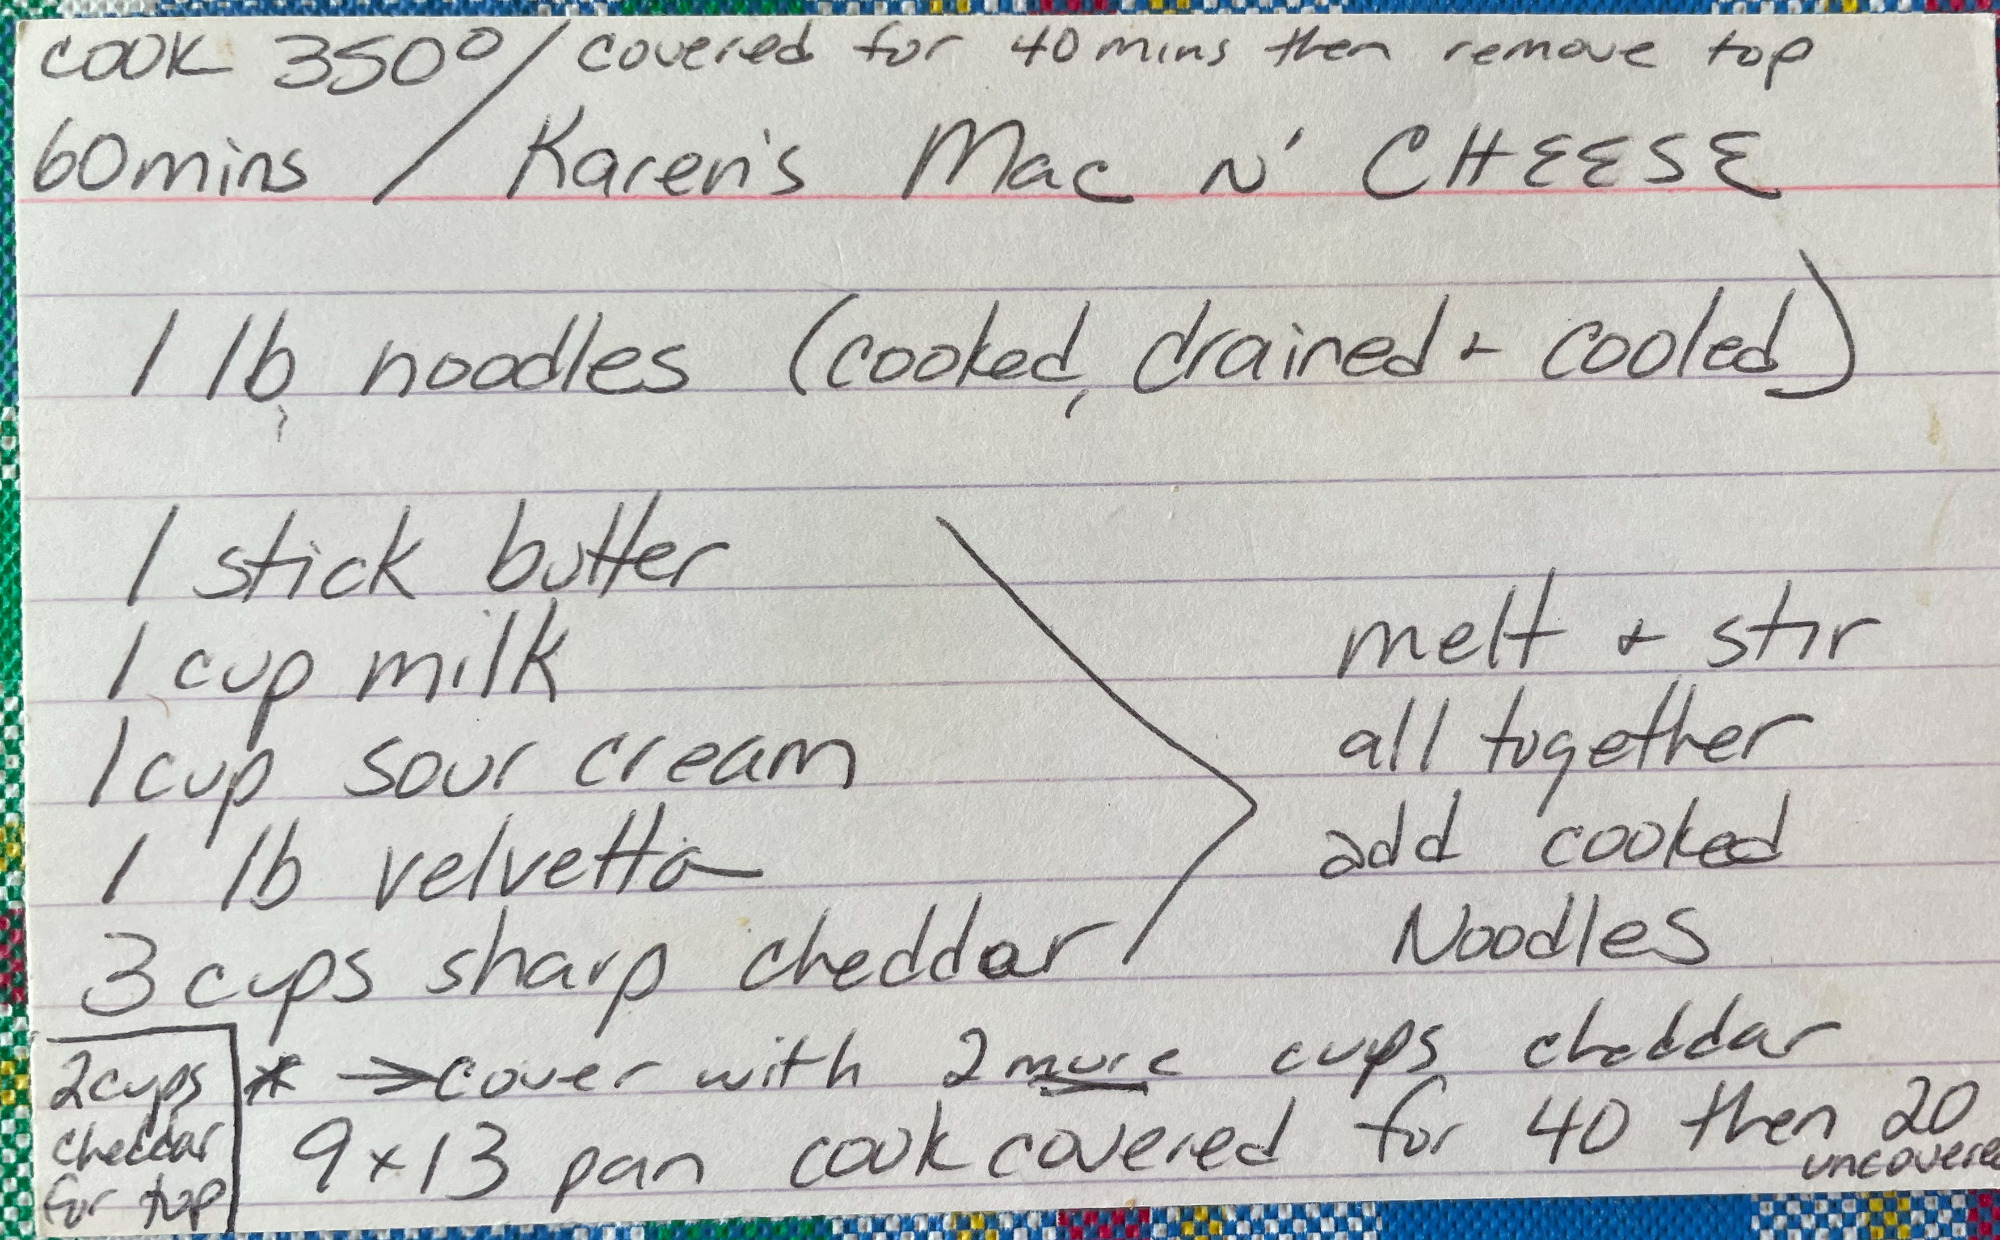 COOK 350° / covered for 40 mins then remove top
60 mins / Karen's Mac N' CHEESE
1 lb noodles (cooked, drained + cooled)
1 stick butter
1 cup milk
1 cup sour cream
1 lb velvetta
3 cups sharp cheddar
melt + stir
all together
add cooked
Noodles
2 cups
cheddar
for top
* → cover with 2 more cups cheddar
9 x 13 pan cook covered for 40 then 20
uncovered